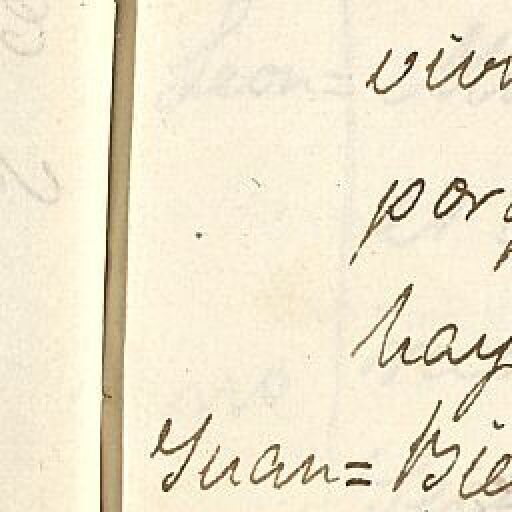 vivi
porq
hay
Juan= Bie